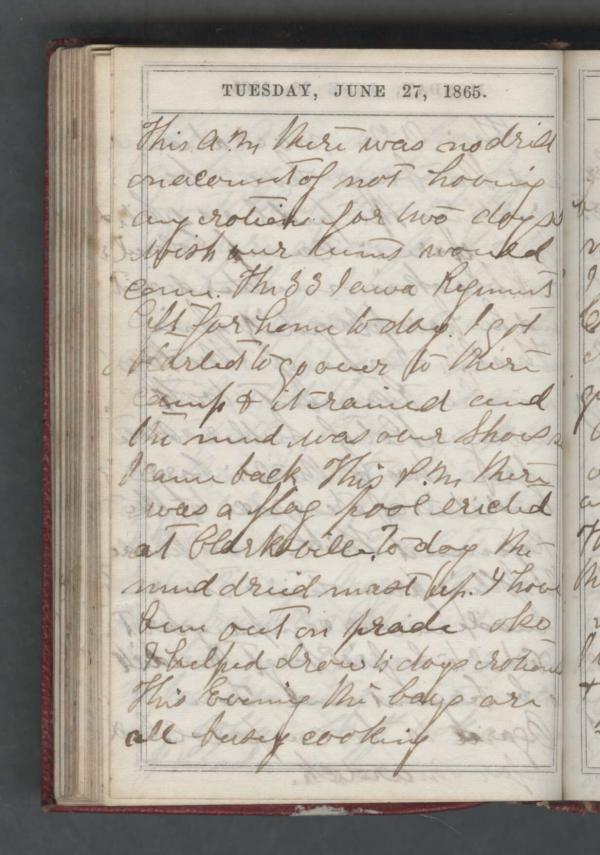 TUESDAY, JUNE 27, 1865.
This A.M there was no drill
on acount of not having
any rotiens for two days
wish our would
come. The 33 Iawa Regiment
left for home to day. I got
started to go over to there
camp & it rained and
the mud was over shoes
I came back This P.M there
was a flag pool ericted
at Clarksville. To day the
mud dried mast up. I have
been out on prade also
I helped drow to days rotiens
This Evening the boys are
all busey cooking